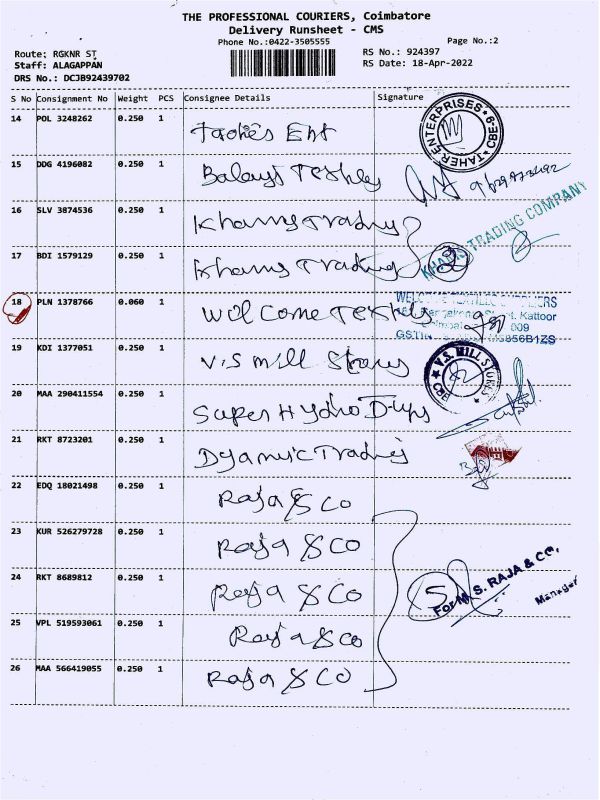 THE PROFESSIONAL COURIERS, Coimbatore
Delivery Runsheet - CMS
Phone No.:0422-3505555
Page No.:2
Route: RGKNR ST
RS No.: 924397
Staff: ALAGAPPAN
RS Date: 18-Apr-2022
DRS No.: DCJB92439702
S No Consignment No Weight PCS Consignee Details Signature
14 POL 3248262 0.250 1 Ent
TAHER ENTERPRISES CBE-9
15 DDG 4196082 0.250 1 Balaji
16 SLV 3874536 0.250 1 Khams Trading
KHAMS TRADING COMPANY
17 BDI 1579129 0.250 1 Khams Trading 2
18 PLN 1378766 0.060 1 Welcome
009
19 KDI 1377051 0.250 1 V.S mill Stores
V.S. MILL STORES CBE
20 MAA 290411554 0.250 1 Super Hydro
21 RKT 8723201 0.250 1 Trading
22 EDQ 18021498 0.250 1 Raja & CO
23 KUR 526279728 0.250 1 Raja & CO
24 RKT 8689812 0.250 1 Raja & CO
5
For M.S. RAJA & CO.
Manager
25 VPL 519593061 0.250 1 Raja & CO
26 MAA 566419055 0.250 1 Raja & CO